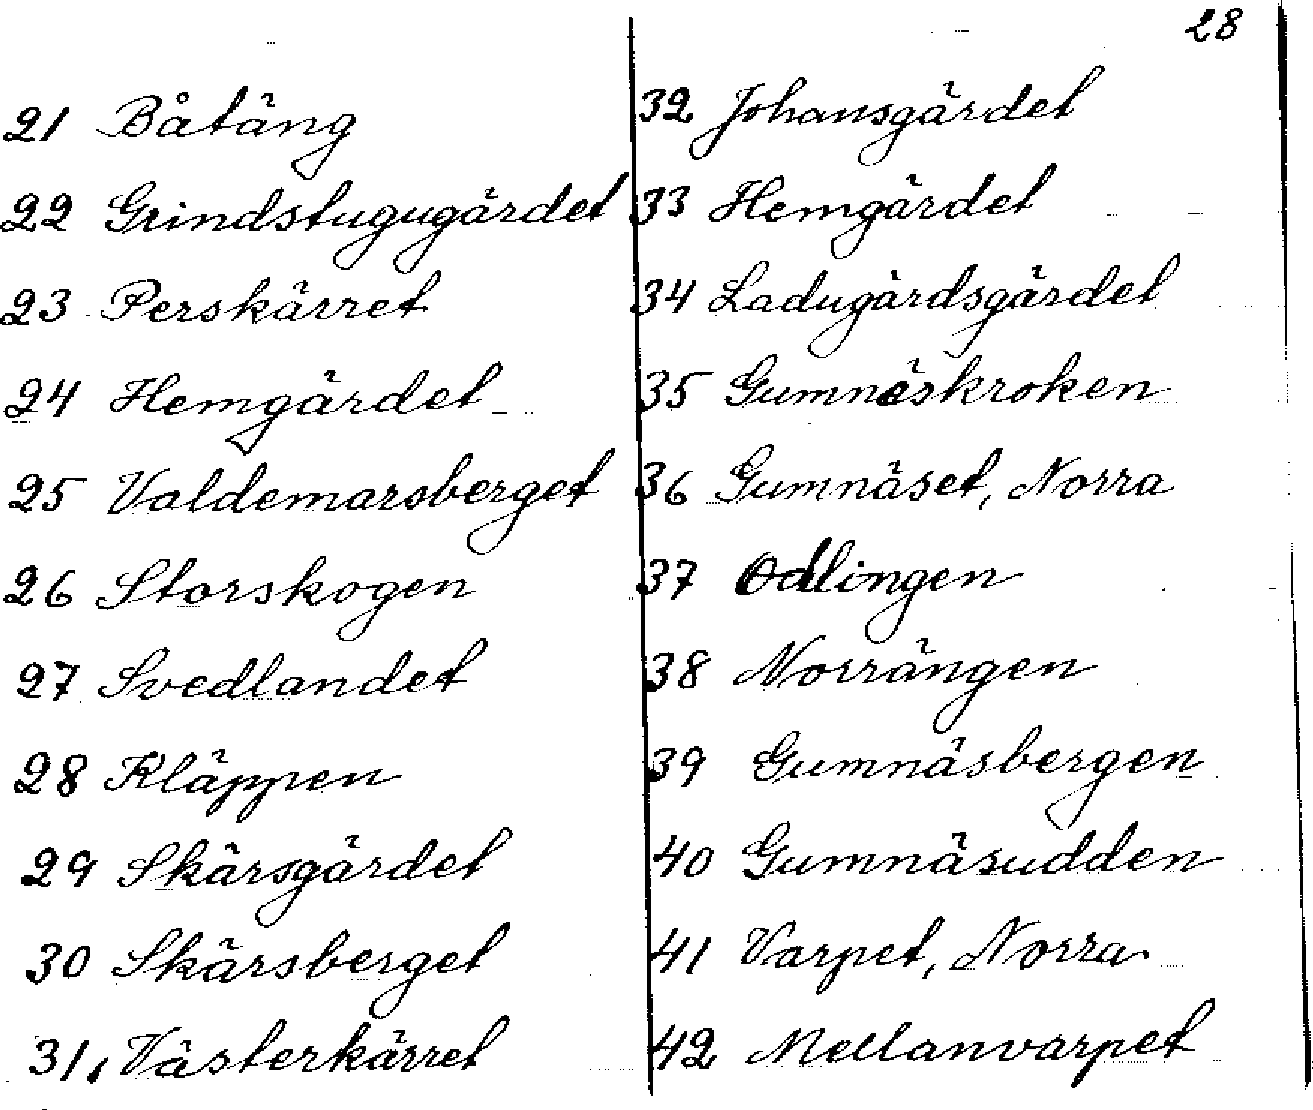 28
21 Båtäng
22 Grindstugugärdet
23 Perskärret
24 Hemgärdet
25 Valdemarsberget
26 Storskogen
27 Svedlandet
28 Kläppen
29 Skärsgärdet
30 Skärsberget
31, Västerkärret
32 Johansgärdet
33 Hemgärdet
34 Ladugärdsgärdet
35 Gumnäskroken
36 Gumnäset, Norra
37 Odlingen
38 Norrängen
39 Gumnäsbergen
40 Gumnäsudden
41 Varpet, Norra
42 Mellanvarpet